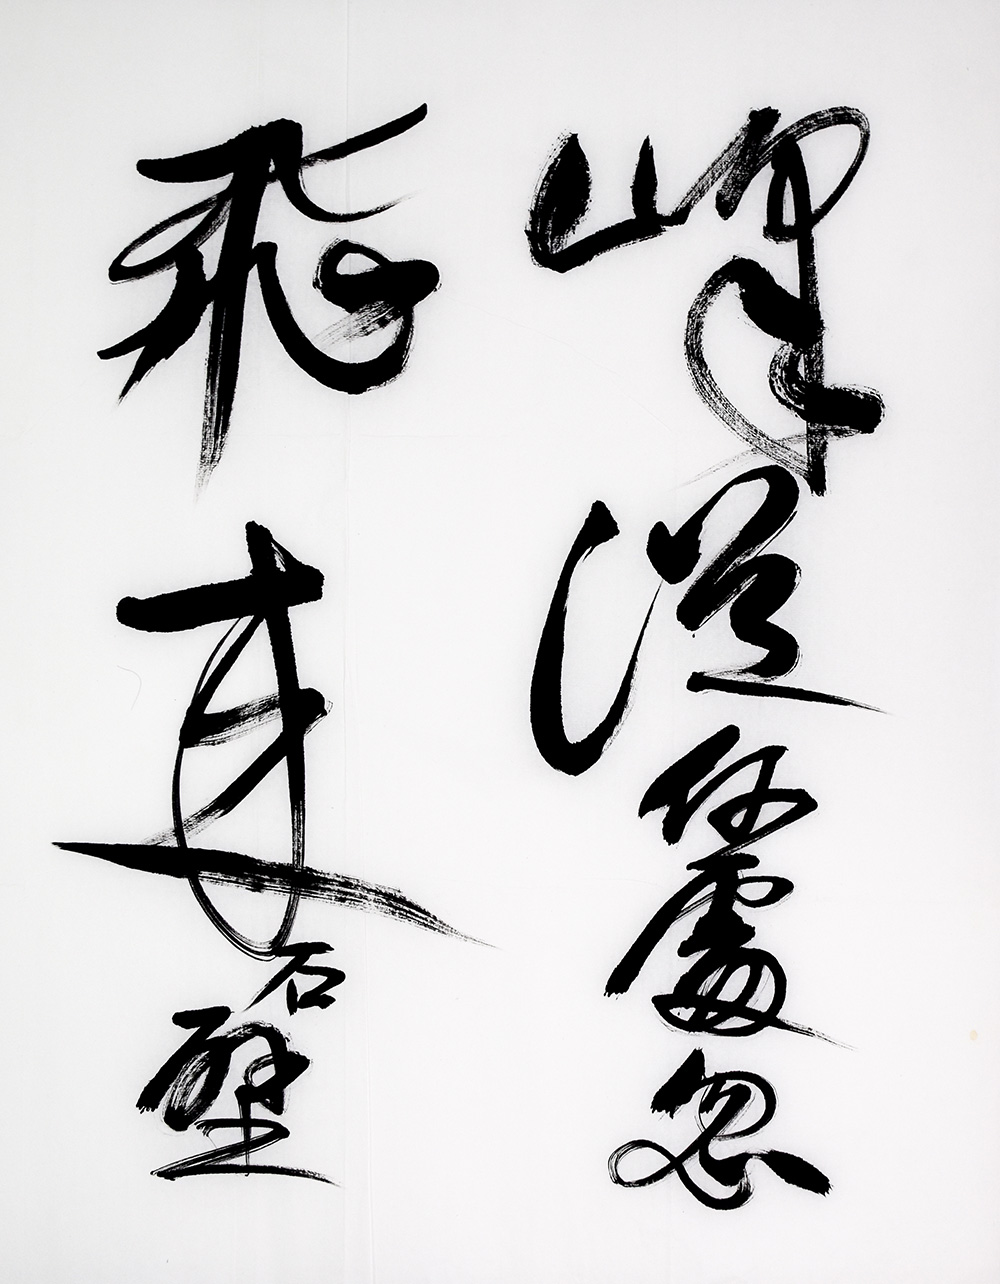 峰從何處忽
飛來石壁